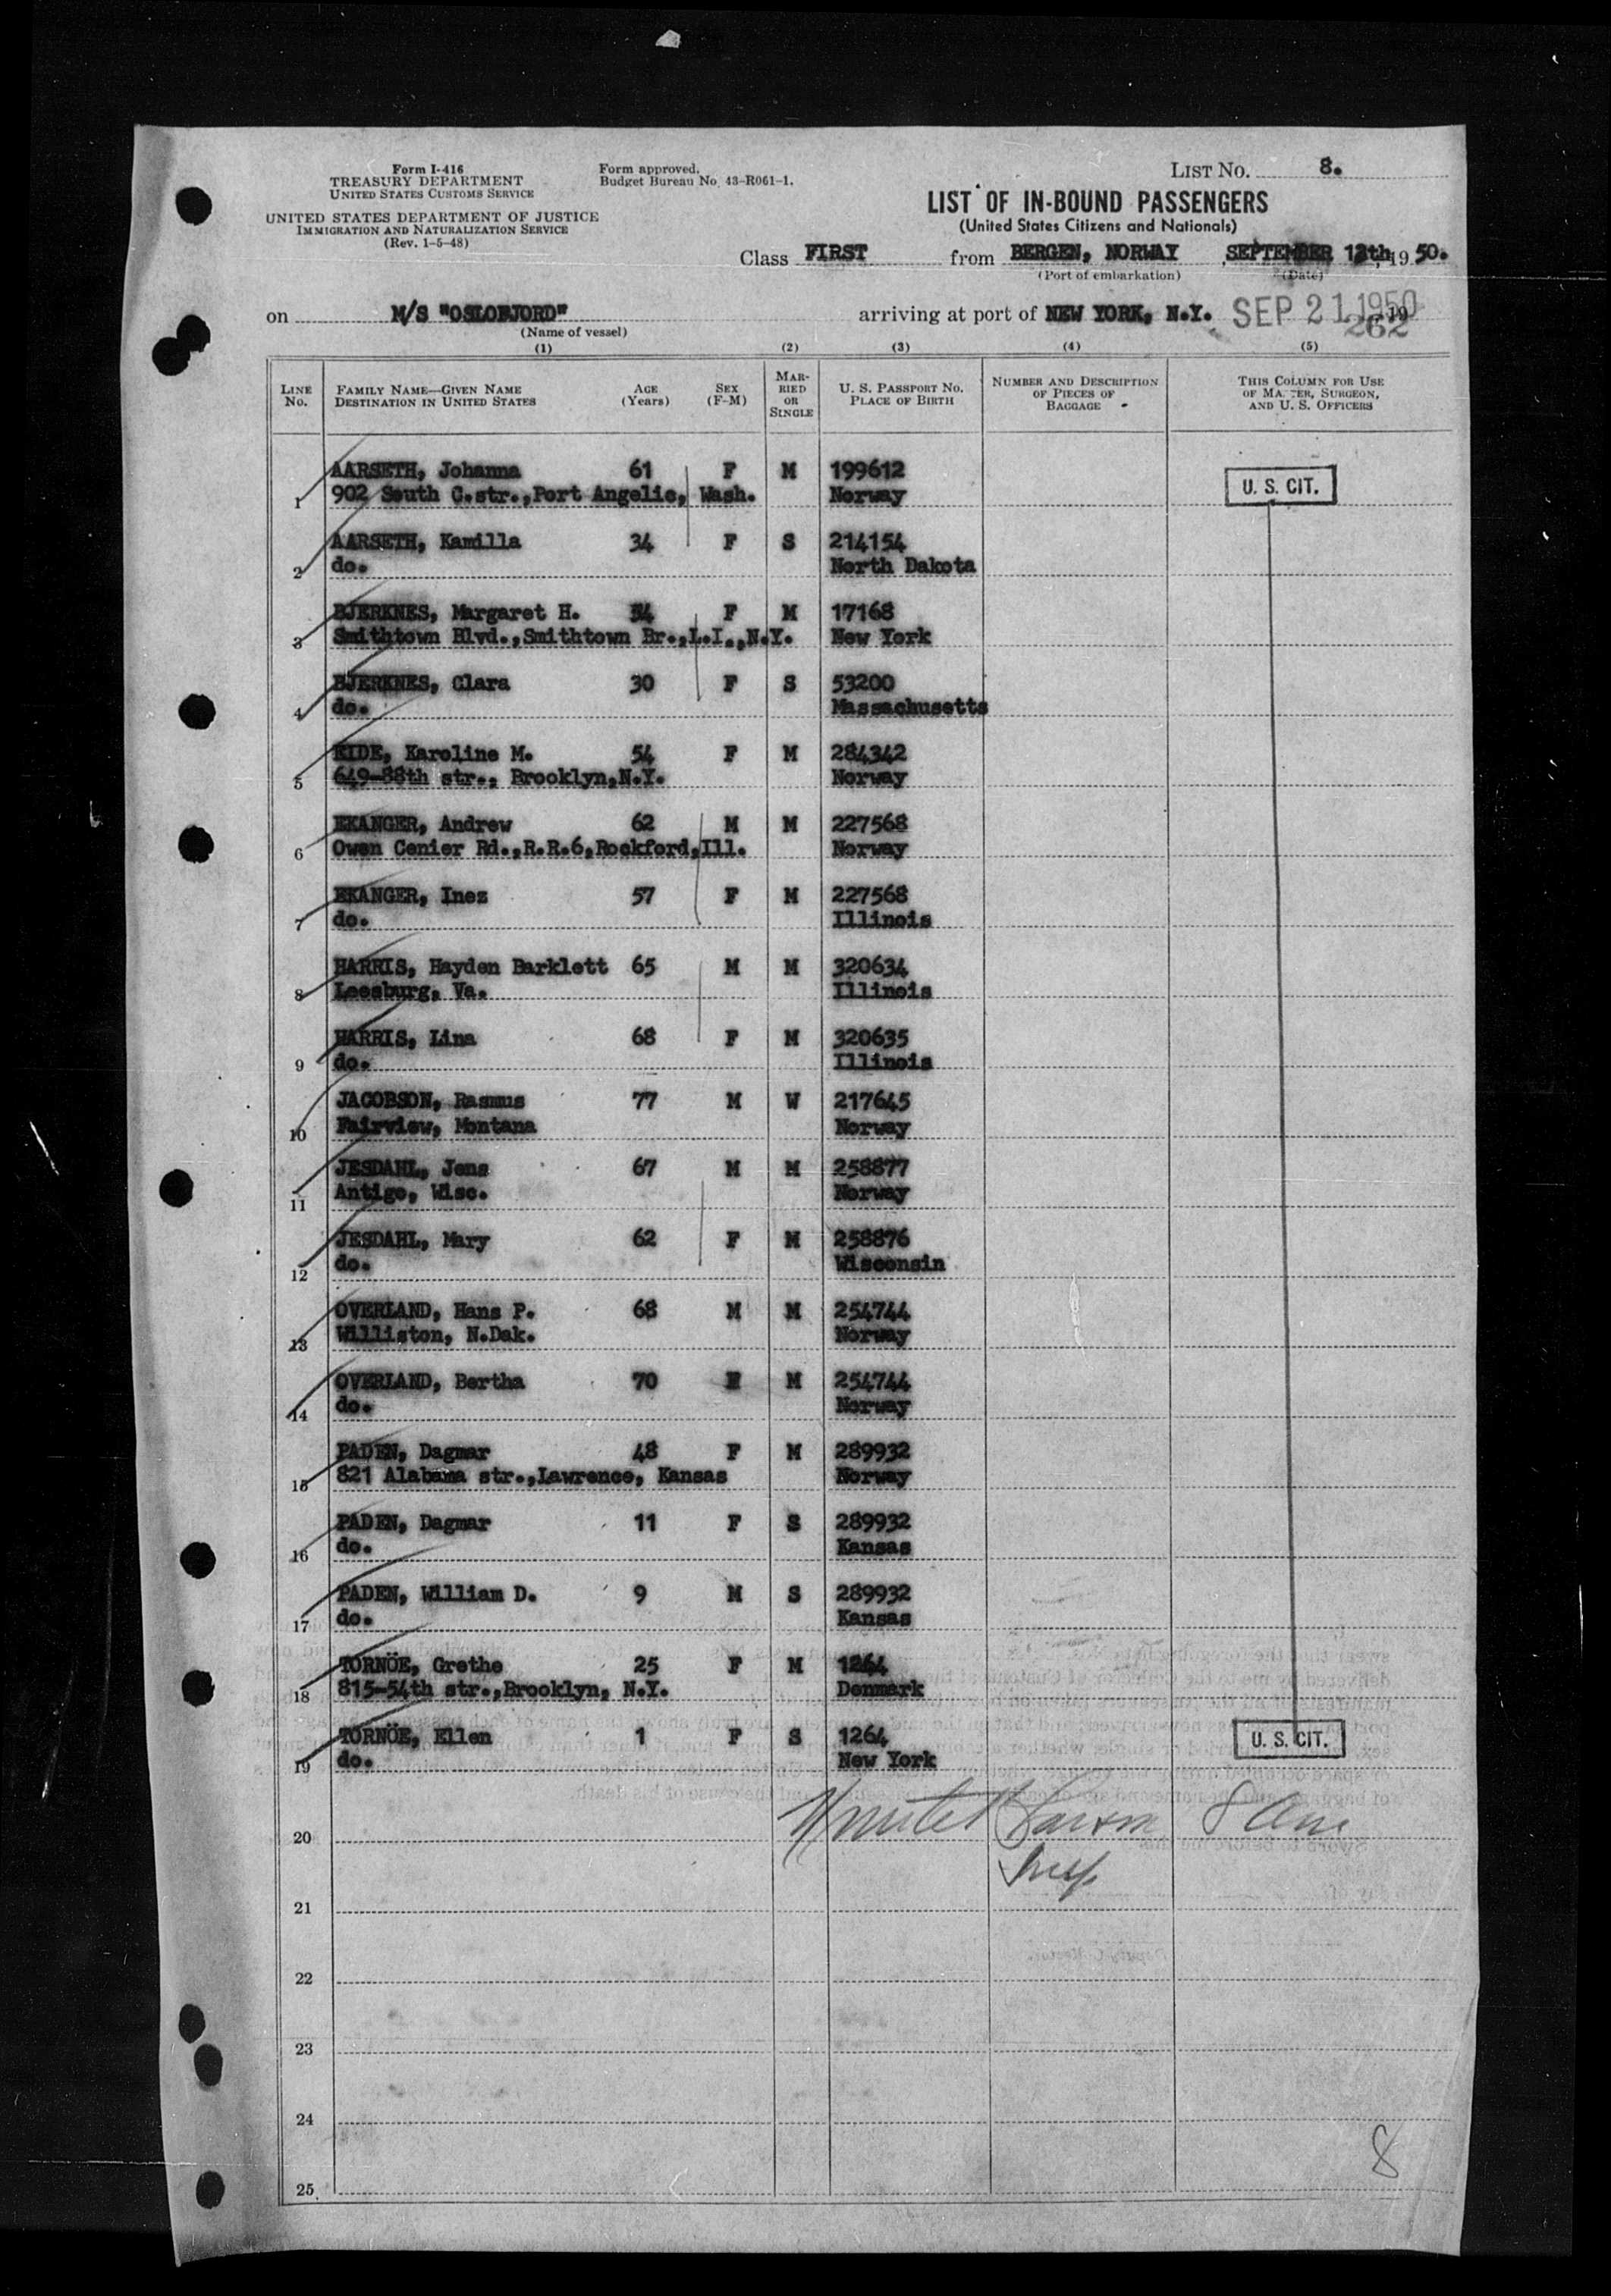 Form I-416
TREASURY DEPARTMENT
UNITED STATES CUSTOMS SERVICE
UNITED STATES DEPARTMENT OF JUSTICE
IMMIGRATION AND NATURALIZATION SERVICE
(Rev. 1-5-48)
Form approved.
Budget Bureau No. 43-R061-1.
LIST No. 8.
LIST OF IN-BOUND PASSENGERS
(United States Citizens and Nationals)
Class FIRST from BERGEN, NORWAY, SEPTEMBER 12th, 19 50.
(Port of embarkation) (Date)
on M/S "OSLOFJORD" arriving at port of NEW YORK, N.Y. SEP 21 1950, 19
(Name of vessel) 262
(1) (2) (3) (4) (5)
LINE No. FAMILY NAME—GIVEN NAME DESTINATION IN UNITED STATES AGE (Years) SEX (F-M) MARRIED OR SINGLE U. S. PASSPORT No. PLACE OF BIRTH NUMBER AND DESCRIPTION OF PIECES OF BAGGAGE THIS COLUMN FOR USE OF MASTER, SURGEON, AND U. S. OFFICERS
AARSETH, Johanna 61 F M 199612 U. S. CIT.
1 902 South C.str.,Port Angelic, Wash. Norway
AARSETH, Kamilla 34 F S 214154
2 do. North Dakota
BJERKNES, Margaret H. 54 F M 17168
3 Smithtown Blvd.,Smithtown Br.,L.I.,N.Y. New York
BJERKNES, Clara 30 F S 53200
4 do. Massachusetts
EIDE, Karoline M. 54 F M 284342
5 649-88th str., Brooklyn,N.Y. Norway
EKANGER, Andrew 62 M M 227568
6 Owen Cenier Rd.,R.R.6,Rockford,Ill. Norway
EKANGER, Inez 57 F M 227568
7 do. Illinois
HARRIS, Hayden Barklett 65 M M 320634
8 Leesburg, Va. Illinois
HARRIS, Lina 68 F M 320635
9 do. Illinois
JACOBSON, Rasmus 77 M W 217645
10 Fairview, Montana Norway
JESDAHL, Jens 67 M M 258877
11 Antigo, Wisc. Norway
JESDAHL, Mary 62 F M 258876
12 do. Wisconsin
OVERLAND, Hans P. 68 M M 254744
13 Williston, N.Dak. Norway
OVERLAND, Bertha 70 M 254744
14 do. Norway
PADEN, Dagmar 48 F M 289932
15 821 Alabama str.,Lawrence, Kansas Norway
PADEN, Dagmar 11 F S 289932
16 do. Kansas
PADEN, William D. 9 M S 289932
17 do. Kansas
TORNÖE, Grethe 25 F M 1264
18 815-54th str.,Brooklyn, N.Y. Denmark
TORNÖE, Ellen 1 F S 1264 U. S. CIT.
19 do. New York
20
Insp
21
22
23
24
8
25